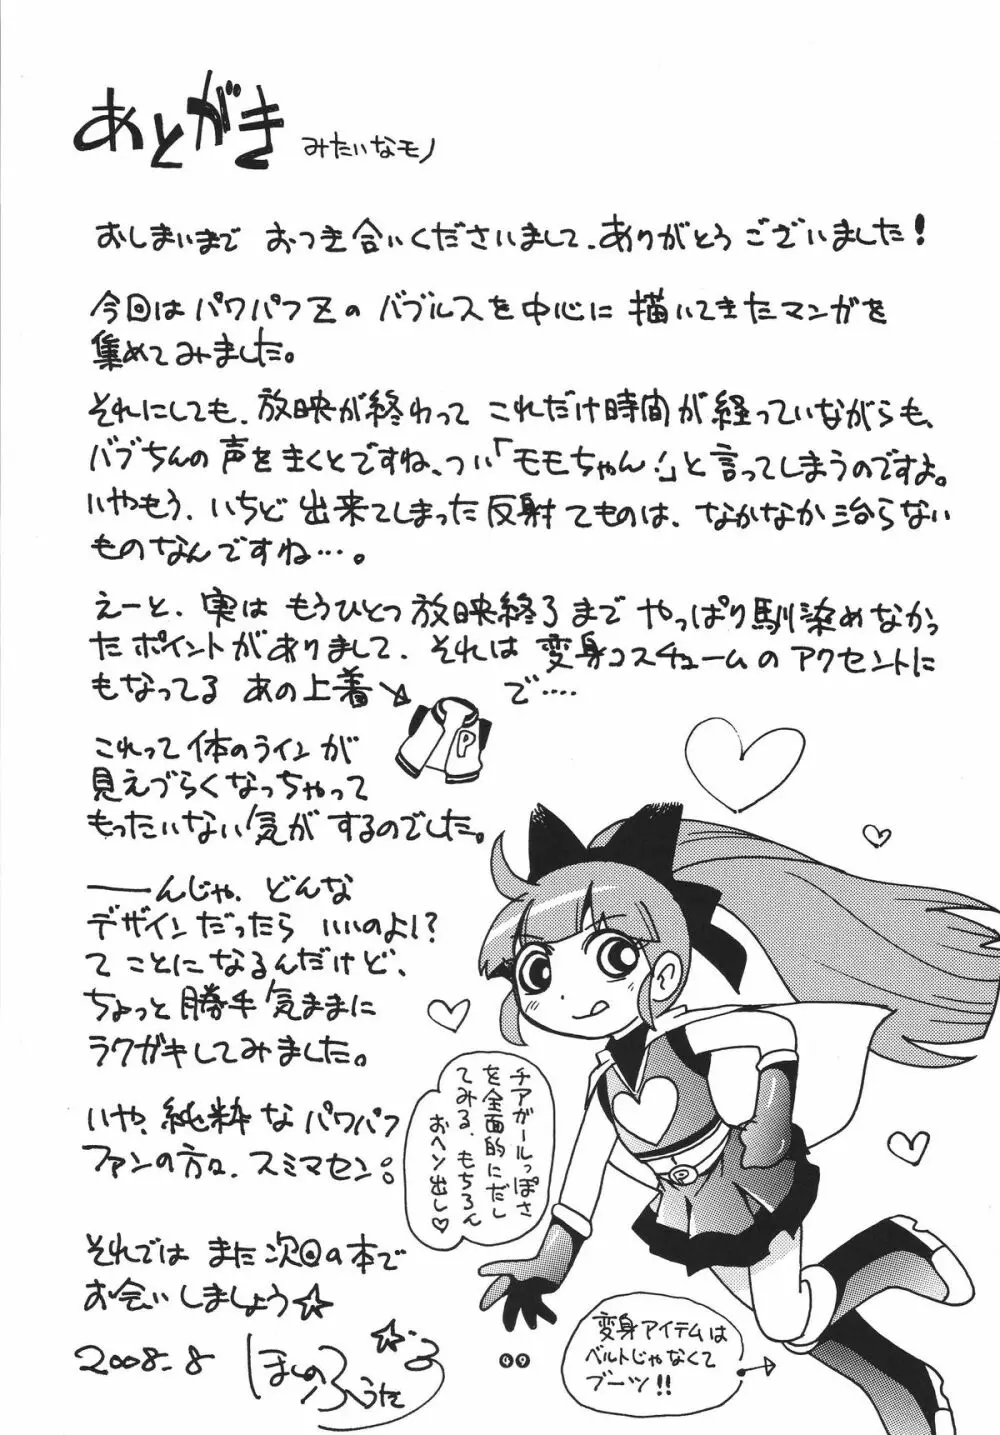 あとがき みたいなモノ
おしまいまで おつき合いくださいまして、ありがとうございました！
今回は パワパフZの バブルスを中心に 描いてきたマンガを
集めてみました。
それにしても、放映が終わって これだけ時間が経っていながらも、
バブちんの声をきくとですね、つい「モモちゃん！」と言ってしまうのですよ。
いやもう、いちど 出来てしまった反射てものは、なかなか治らない
ものなんですね…。
えーと、実は もうひとつ 放映終了まで やっぱり馴染めなかっ
たポイントがありまして、それは 変身コスチュームの アクセントに
もなってる あの上着 で‥‥
P
これって 体のラインが
見えづらくなっちゃって
もったいない気が するのでした。
――んじゃ、どんな
デザインだったら いいのよ!?
て ことに なるんだけど、
ちょっと 勝手気ままに
ラクガキしてみました。
いや、純粋な パワパフ
ファンの方々、スミマセン。
それでは また 次回の本で
お会いしましょう☆
2008.8 ほしのふうた
チアガールっぽさ
を全面的にだし
てみる、もちろん
おヘソ出し♡
P
変身アイテムは
ベルトじゃなくて
ブーツ!!
49